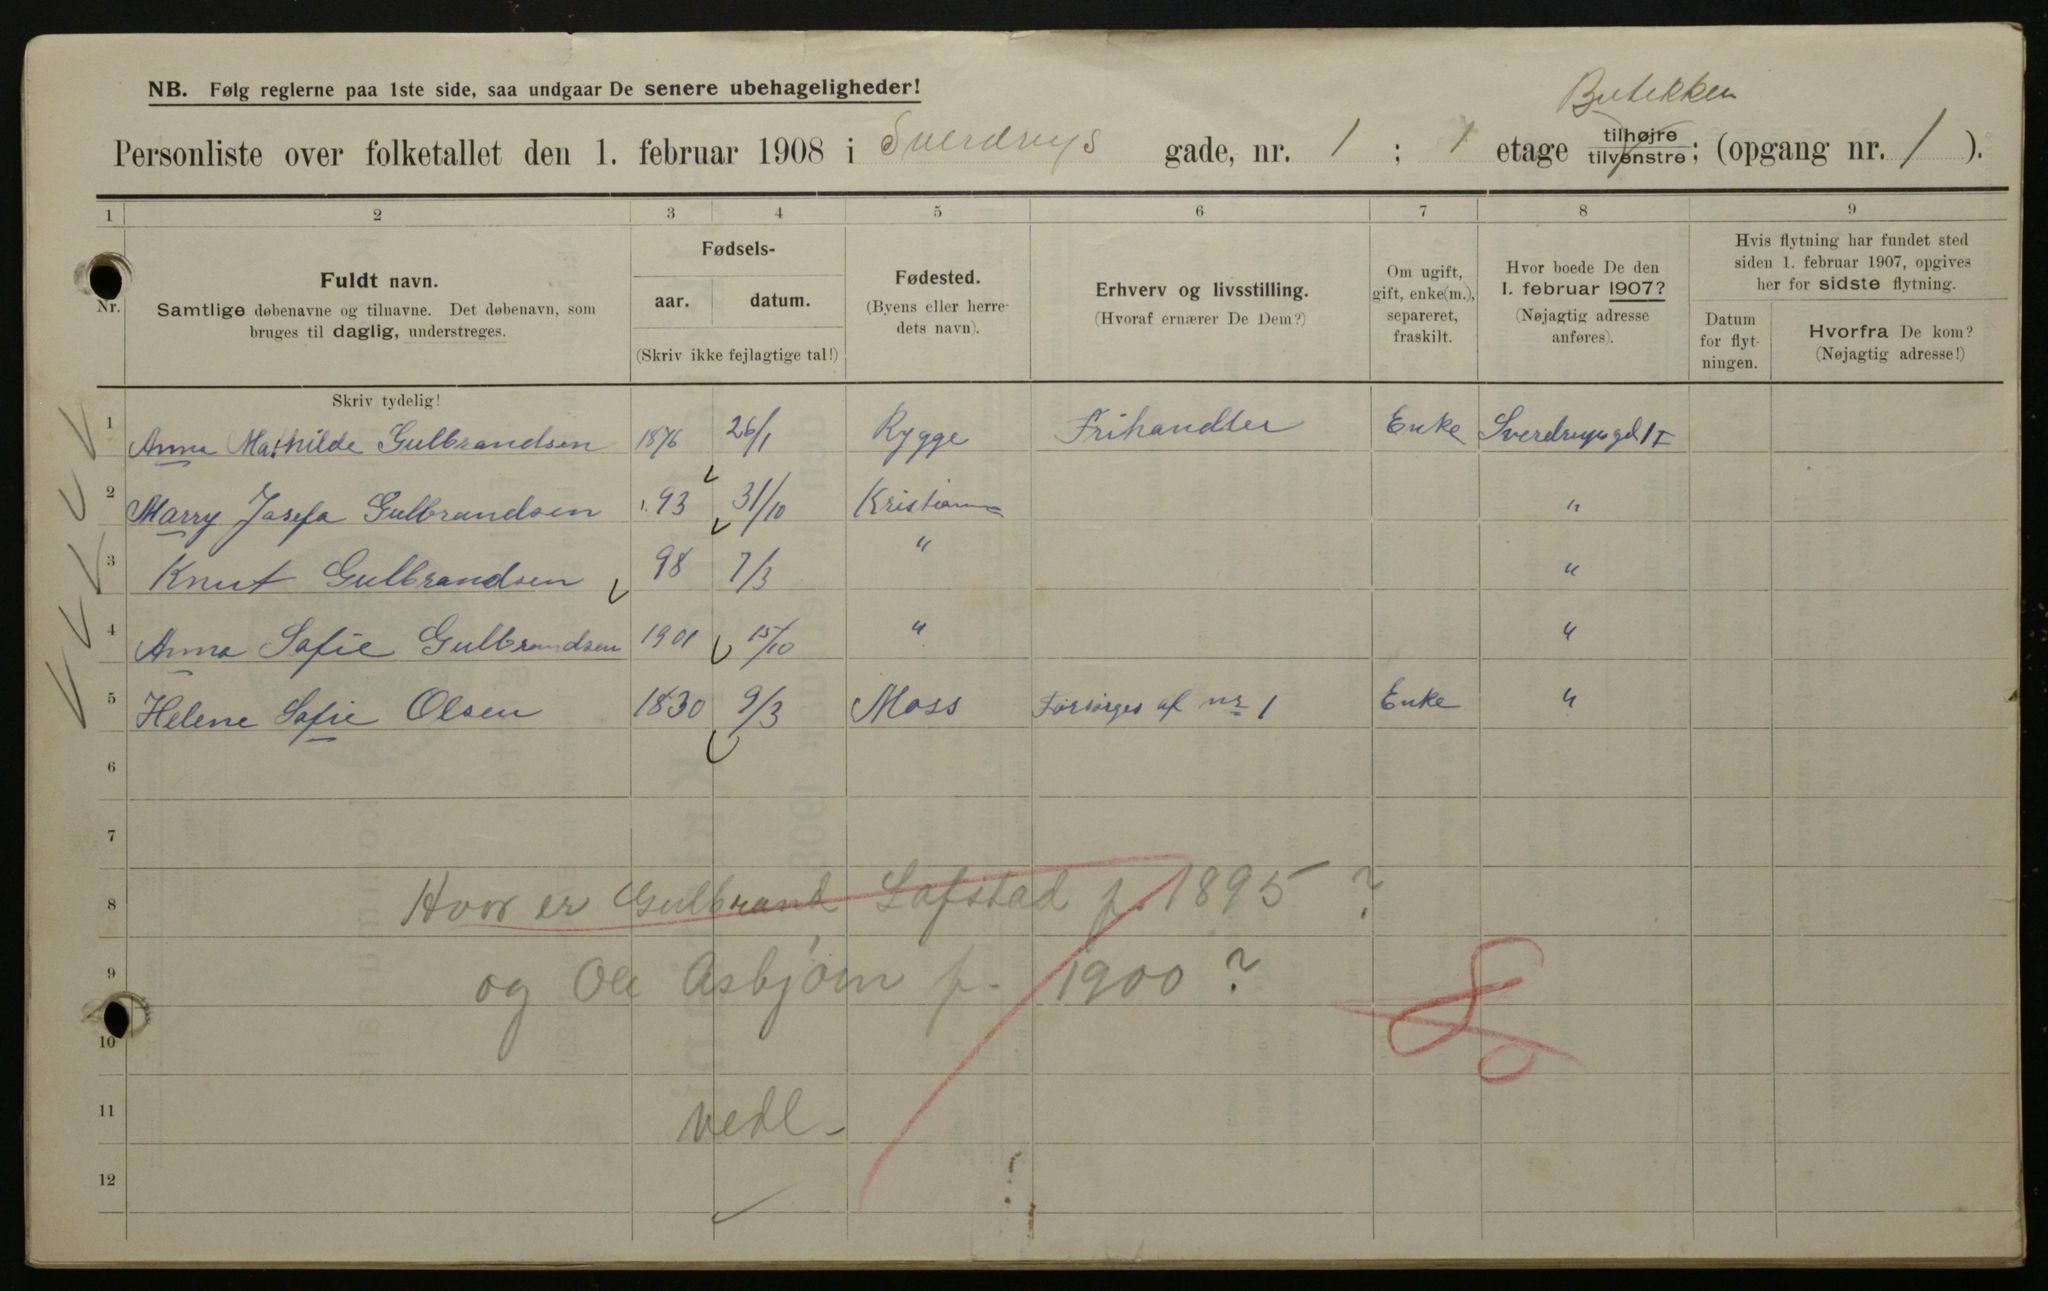 NB. Følg reglerne paa 1ste side, saa undgaar De senere ubehageligheder!
Butikken
Personliste over folketallet den 1. februar 1908 i Sverdrups gade, nr. 1 ; 1 etage tilhøjre tilvenstre; (opgang nr. 1 ).
1 2 3 4 5 6 7 8 9
Nr.
Fuldt navn.
Samtlige døbenavne og tilnavne. Det døbenavn, som
bruges til daglig, understreges.
Skriv tydelig!
Fødsels-
aar. datum.
(Skriv ikke fejlagtige tal!)
Fødested.
(Byens eller herre-
dets navn).
Erhverv og livsstilling.
(Hvoraf ernærer De Dem?)
Om ugift,
gift, enke(m.),
separeret,
fraskilt.
Hvor boede De den
1. februar 1907?
(Nøjagtig adresse
anføres).
Hvis flytning har fundet sted
siden 1. februar 1907, opgives
her for sidste flytning.
Datum
for flyt-
ningen.
Hvorfra De kom?
(Nøjagtig adresse!)
1 Anna Mathilde Gulbrandsen 1876 26/1 Rygge Frihandler Enke Sverdrupsgd 1 I
2 Marry Josefa Gulbrandsen 93 31/10 Kristiania "
3 Knut Gulbrandsen 98 7/3 " "
4 Anna Sofie Gulbrandsen 1901 15/10 " "
5 Helene Sofie Olsen 1830 9/3 Moss Forsørges af nr 1 Enke "
6
7
8 Hvor er Gulbrand Lofstad f. 1895 ?
9 og Ole Asbjørn f. 1900 ?
10
11 vedl.
12